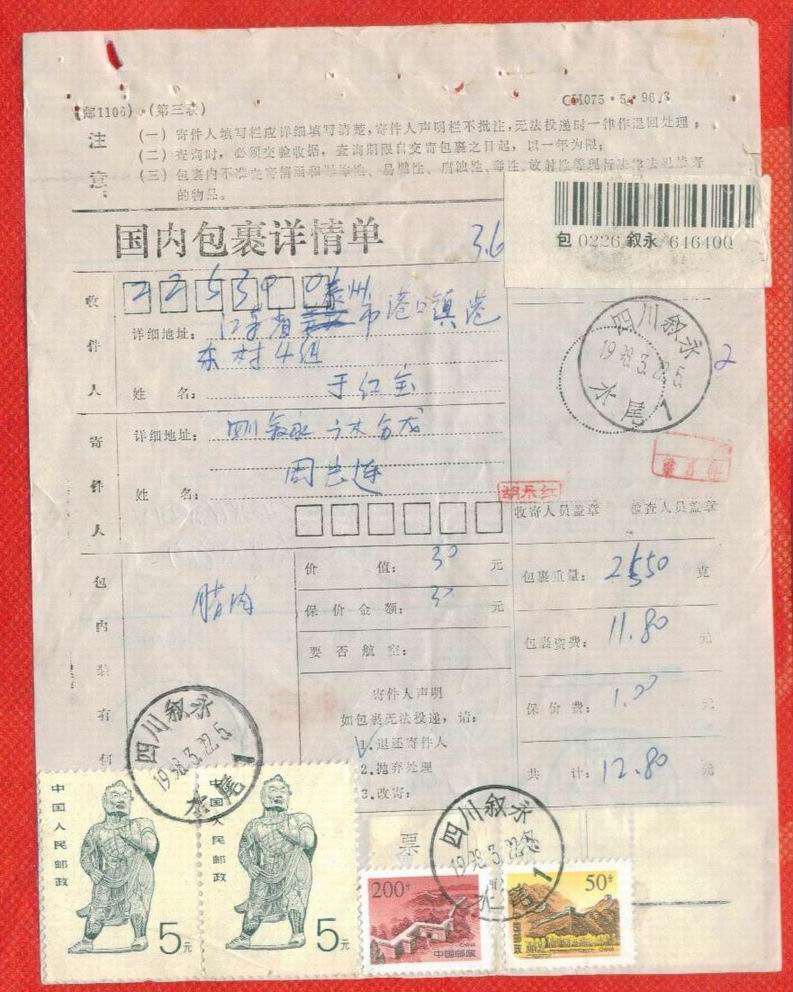 (邮1106)·(第三联)
CH075·5·96.3
注意:
(一) 寄件人填写栏应详细填写清楚,寄件人声明栏不批注,无法投递时一律作退回处理;
(二) 查询时,必须交验收据,查询期限自交寄包裹之日起,以一年为限;
(三) 包裹内不准夹寄
易燃性、腐蚀性、毒性、放射性
的物品。
国内包裹详情单
3.6
包 0226 叙永 646400
收件人
2 2 5 3 0 0
泰州
详细地址: 江苏省 市港口镇港
东村4组
姓 名: 于红
四川叙永
1998.3.22.5
水尾1
2
寄件人
详细地址: 四川叙永
姓 名: 周 连
胡乐红
收寄人员盖章
检查人员盖章
包内装有何
腊肉
价 值: 30 元
保价金额: 30 元
要否航空:
寄件人声明
如包裹无法投递,请:
1.退还寄件人
2.抛弃处理
3.改寄:
包裹重量: 2550 克
包裹资费: 11.80 元
保价费: 1.00 元
共 计: 12.80 元
四川叙永
1998.3.22.5
水尾1
票
四川叙永
1998.3.22.5
水尾1
中国人民邮政
5元
中国人民邮政
5元
200分
CHINA
中国邮政
50分
CHINA